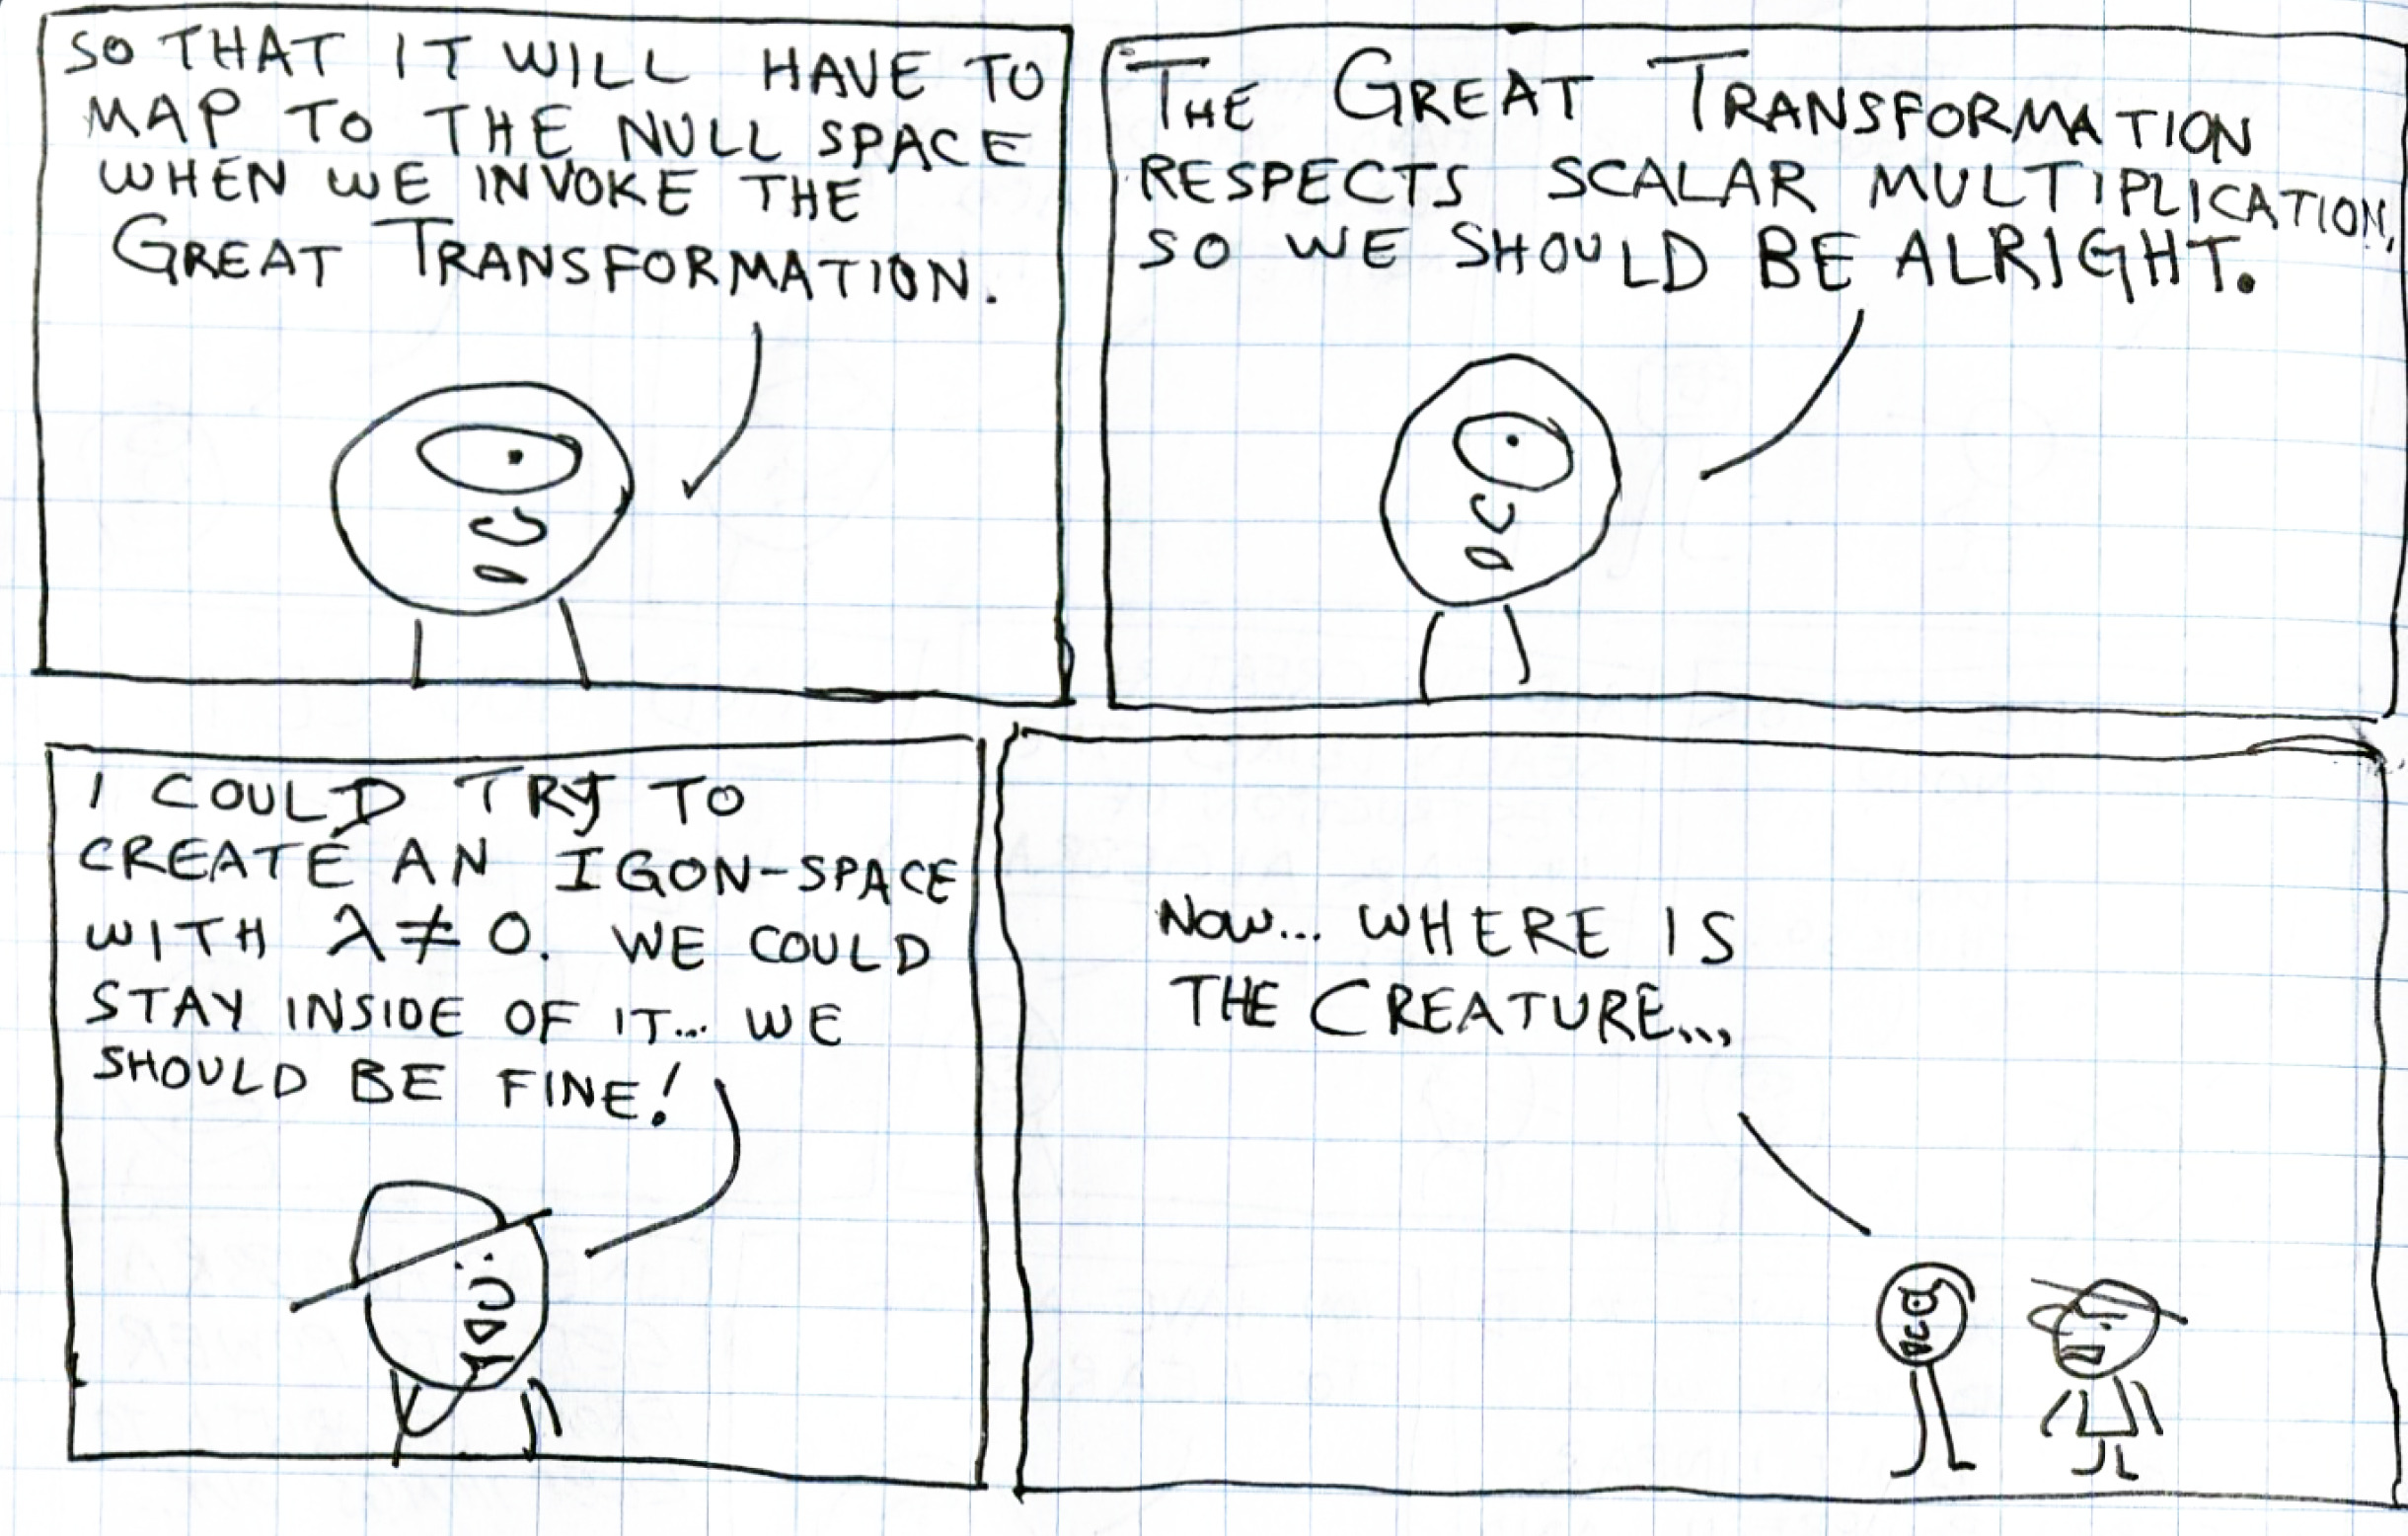 SO THAT IT WILL HAVE TO
MAP TO THE NULL SPACE
WHEN WE INVOKE THE
GREAT TRANSFORMATION.
THE GREAT TRANSFORMATION
RESPECTS SCALAR MULTIPLICATION,
SO WE SHOULD BE ALRIGHT.
I COULD TRY TO
CREATE AN IGON-SPACE
WITH λ ≠ 0. WE COULD
STAY INSIDE OF IT... WE
SHOULD BE FINE!
NOW... WHERE IS
THE CREATURE...